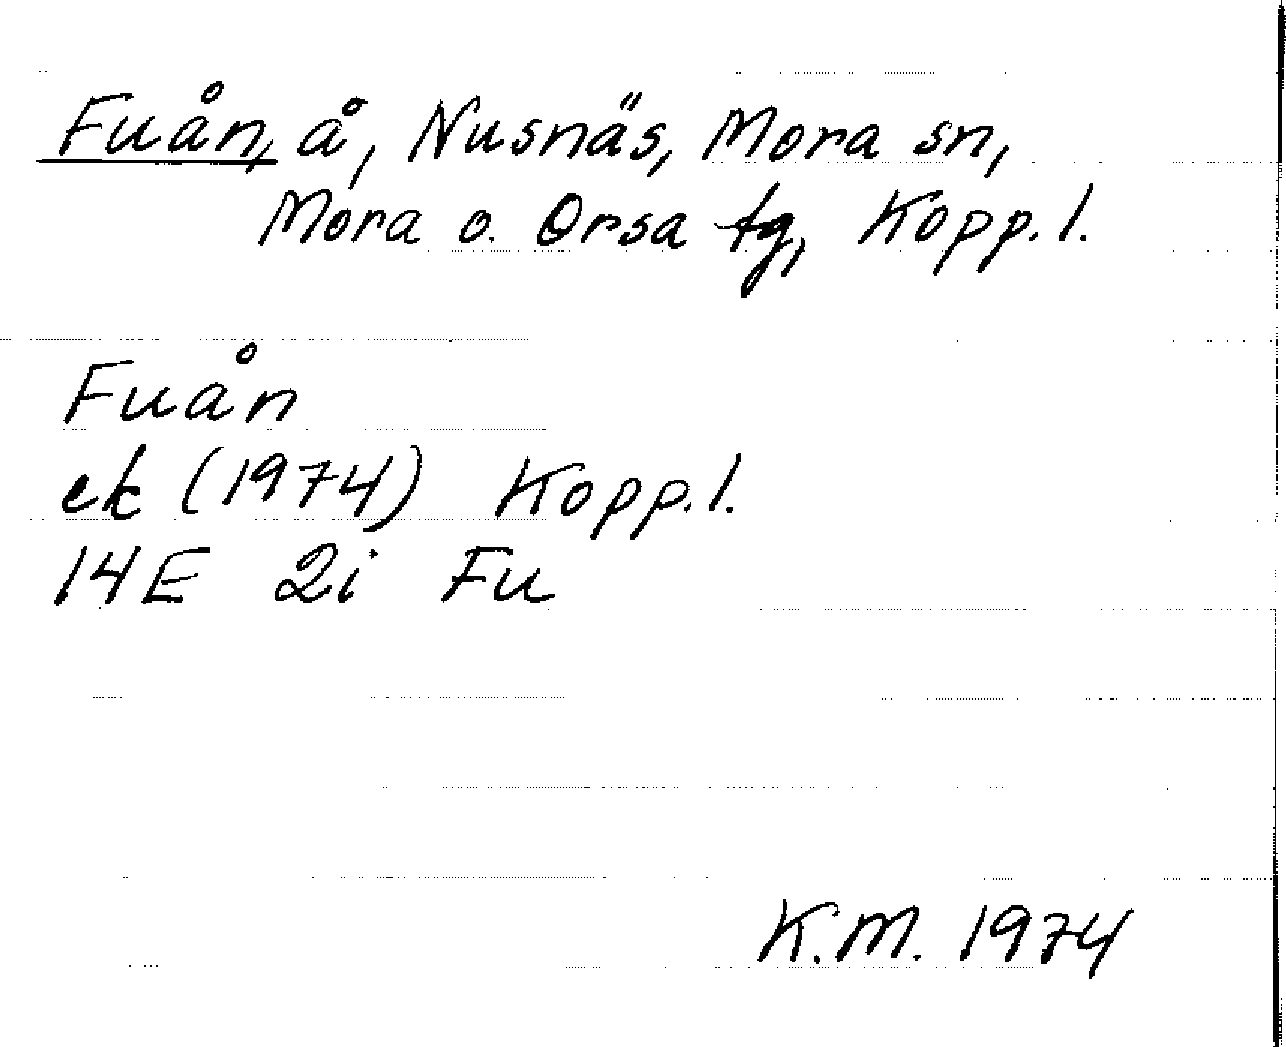 Fuån, å, Nusnäs, Mora sn,
Mora o. Orsa tg, Kopp. l.
Fuån
ek (1974) Kopp. l.
14E 2i Fu
K.M. 1974